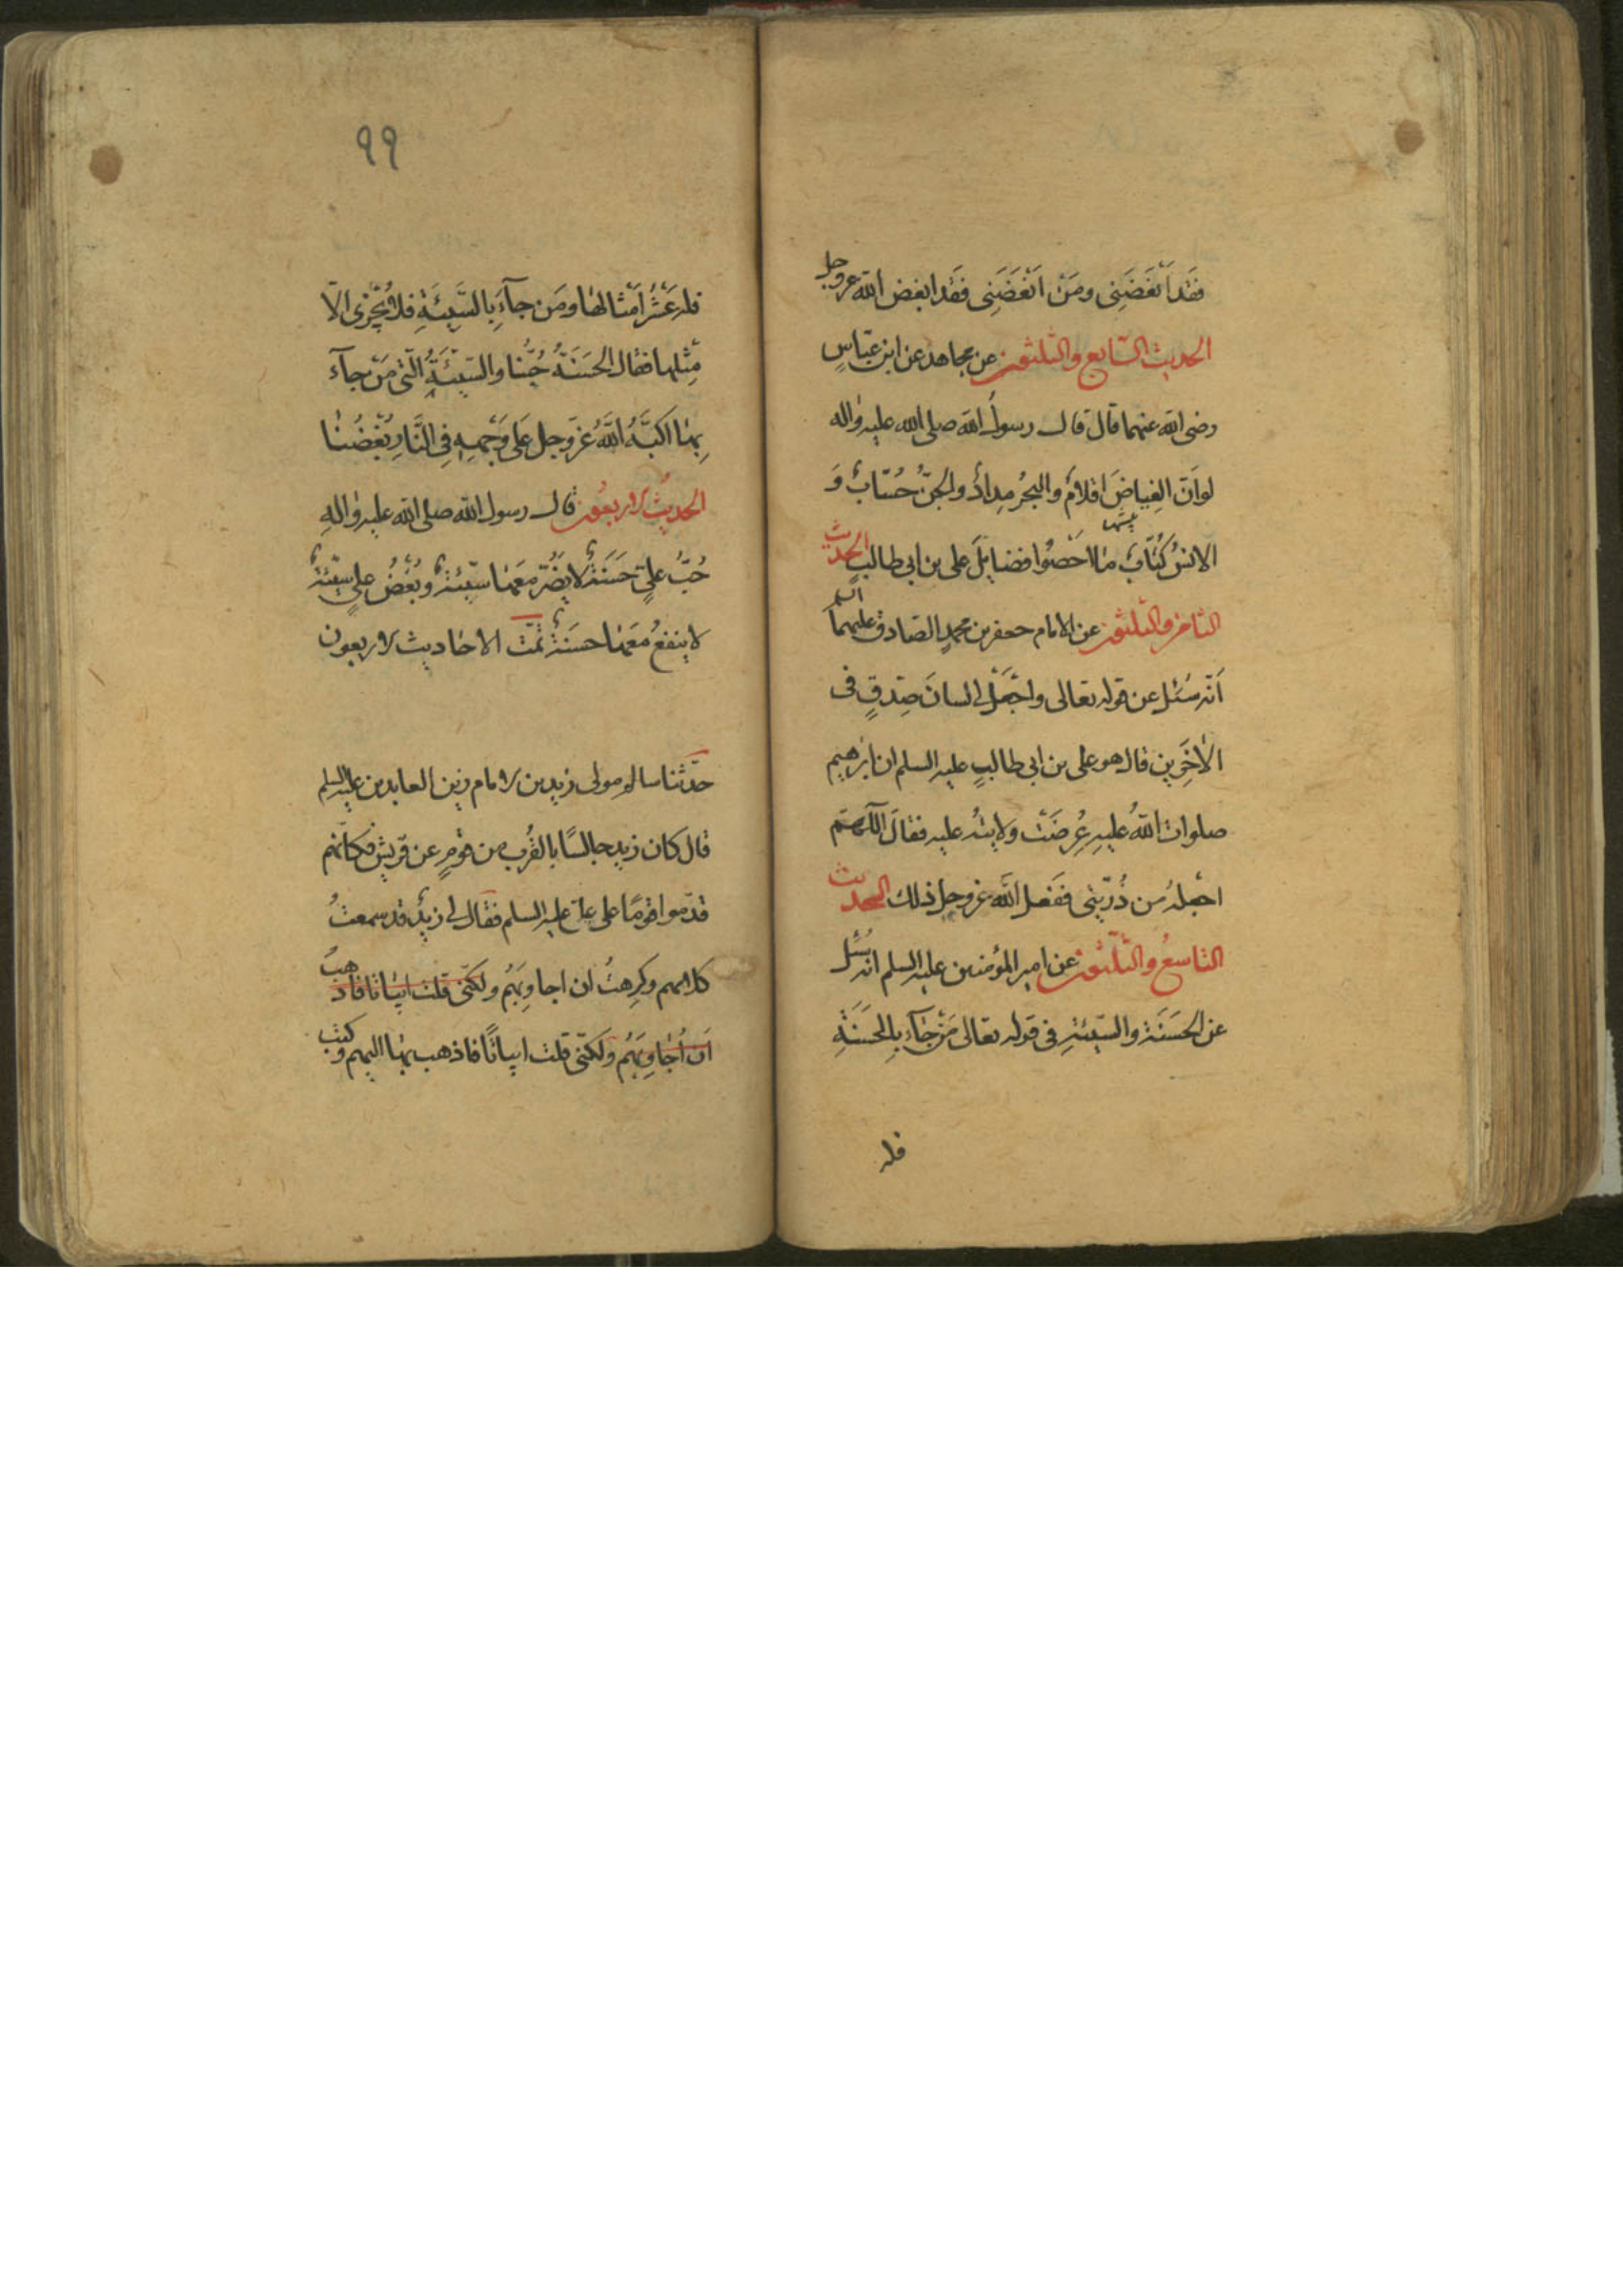 فَقَد اَبْغَضَنِى ومَنْ اَبْغَضَنِى فقَد ابغض اللّه عزوجل
الحديث السّابع والثلثون عن مجاهد عن ابن عبّاسٍ
رضى الله عنهما قال قال رسول الله صلى الله عليه واله
لو اَنّ الغِياضَ اقلامٌ والبحرُ مِدادٌ والجنُّ حُسّابٌ وَ
الانسُ كُتّابٌ ما احْصُوا فضايلَ على بن ابى طالبٍ الحديث
الثامن والثلثون عن الامام جعفر بن محمدٍ الصّادق عليهما السلم
اَنّه سُئل عن قوله تعالى واجْعَلْ لى لسانَ صِدقٍ فى
الآخِرين قال هو على بن ابى طالبٍ عليه السلم ان ابرٰهيم
صلوات اللّهُ عليهِ عُرِضَتْ ولايتُه عليه فقالَ اللّهمّ
اجْعلهُ من ذُرّيّتى ففَعل اللّه عزوجل ذلك الحديث
التاسعُ والثّلثون عن امير المؤمنين عليه السلم انه سُئل
عن الحسَنَة والسّيّئةِ فى قوله تعالى مَنْ جَآءَ بالحَسَنَةِ
فله
٩٩
فله عَشْرُ اَمْثالهٰا ومَن جآءَ بالسَّيّئَةِ فلا يُجْزٰى الّا
مِثْلها فقال الحسَنَةُ حُبُّنا والسّيّئَةُ الّتى مَنْ جآءَ
بِهٰا اكَبَّهُ اللَّهُ عزّوجل عَلى وَجْهِهِ فِى النَّارِ بُغْضُنٰا
الحديثُ الاربعُون قال رسول اللّه صلى اللّه عليه واٰلهِ
حُبُّ علىٍّ حَسَنَةٌ لا يضُرّ مَعَهٰا سيّئةٌ وبُغْضُ علىٍ سيّئةٌ
لا ينفعُ مَعَهٰا حسَنَةٌ تمّت الاحٰاديث الاربعون
حدّثنا سالم مولى زيد بن الامام زين العابدين عليه السلم
قال كان زيد جالسًا بالقُرب من قومٍ عن قريش فكانهم
قدّموا قومًا على علىّ عليه السلم فقال لى زيدٌ قد سمعتُ
كلامهم وكرِهتُ ان اجاوِبَهُم ولكنّى قلت ابياتًا فاذهب
اَن اُجاوِبَهُم ولكنّى قلت ابياتًا فاذهب بهٰا اليهم وكتب